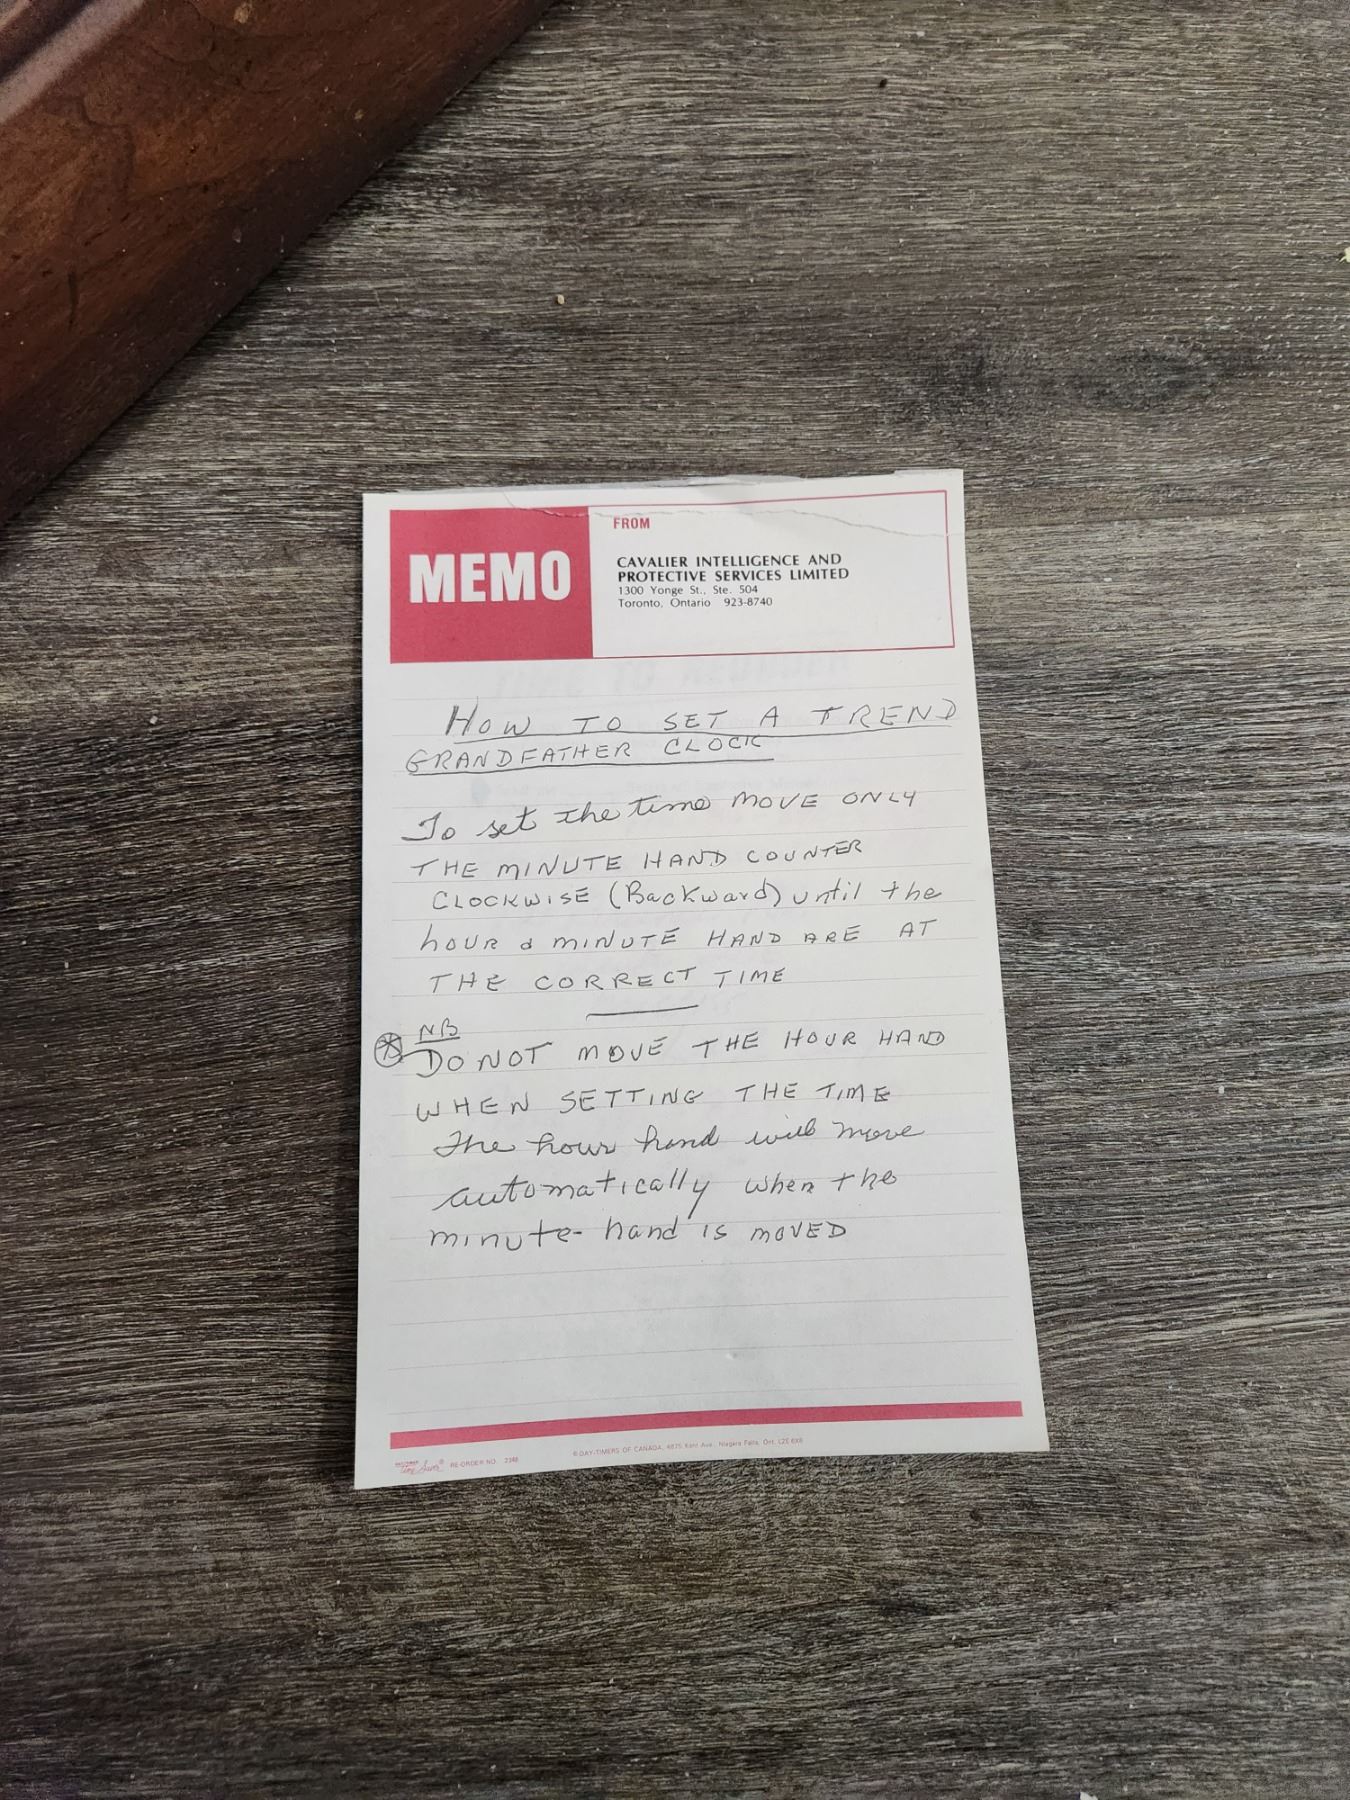 MEMO
FROM
CAVALIER INTELLIGENCE AND
PROTECTIVE SERVICES LIMITED
1300 Yonge St., Ste. 504
Toronto, Ontario 923-8740
HOW TO SET A TREND
GRANDFATHER CLOCK
To set the time MOVE ONLY
THE MINUTE HAND COUNTER
CLOCKWISE (Backward) until the
hour & MINUTE HAND ARE AT
THE CORRECT TIME
NB
DO NOT MOVE THE HOUR HAND
WHEN SETTING THE TIME
The hour hand will move
automatically when the
minute hand is MOVED
© DAY-TIMERS OF CANADA, Kent Ave., Niagara Falls, Ont.
RE-ORDER NO.